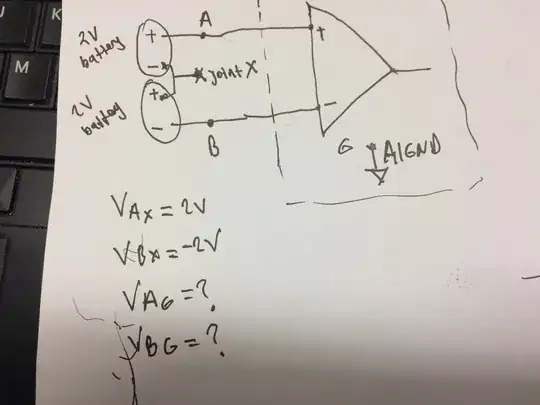 J
K
M
A
2V
battery
+
-
+
X joint X
+
2V
battery
-
-
B
G
AIGND
VAX = 2V
VBX = -2V
VAG = ?
VBG = ?